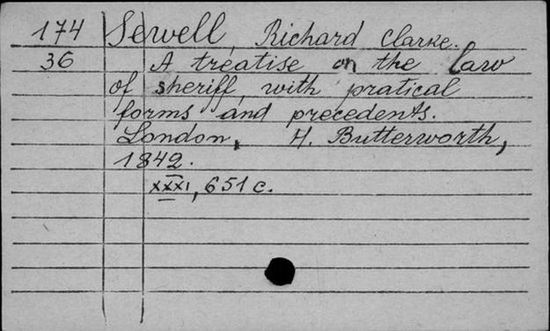 174 Sewell, Richard Clarke.
36 A treatise on the law
of sheriff, with pratical
forms and precedents.
London, H. Butterworth,
1842.
XXXI, 651 c.